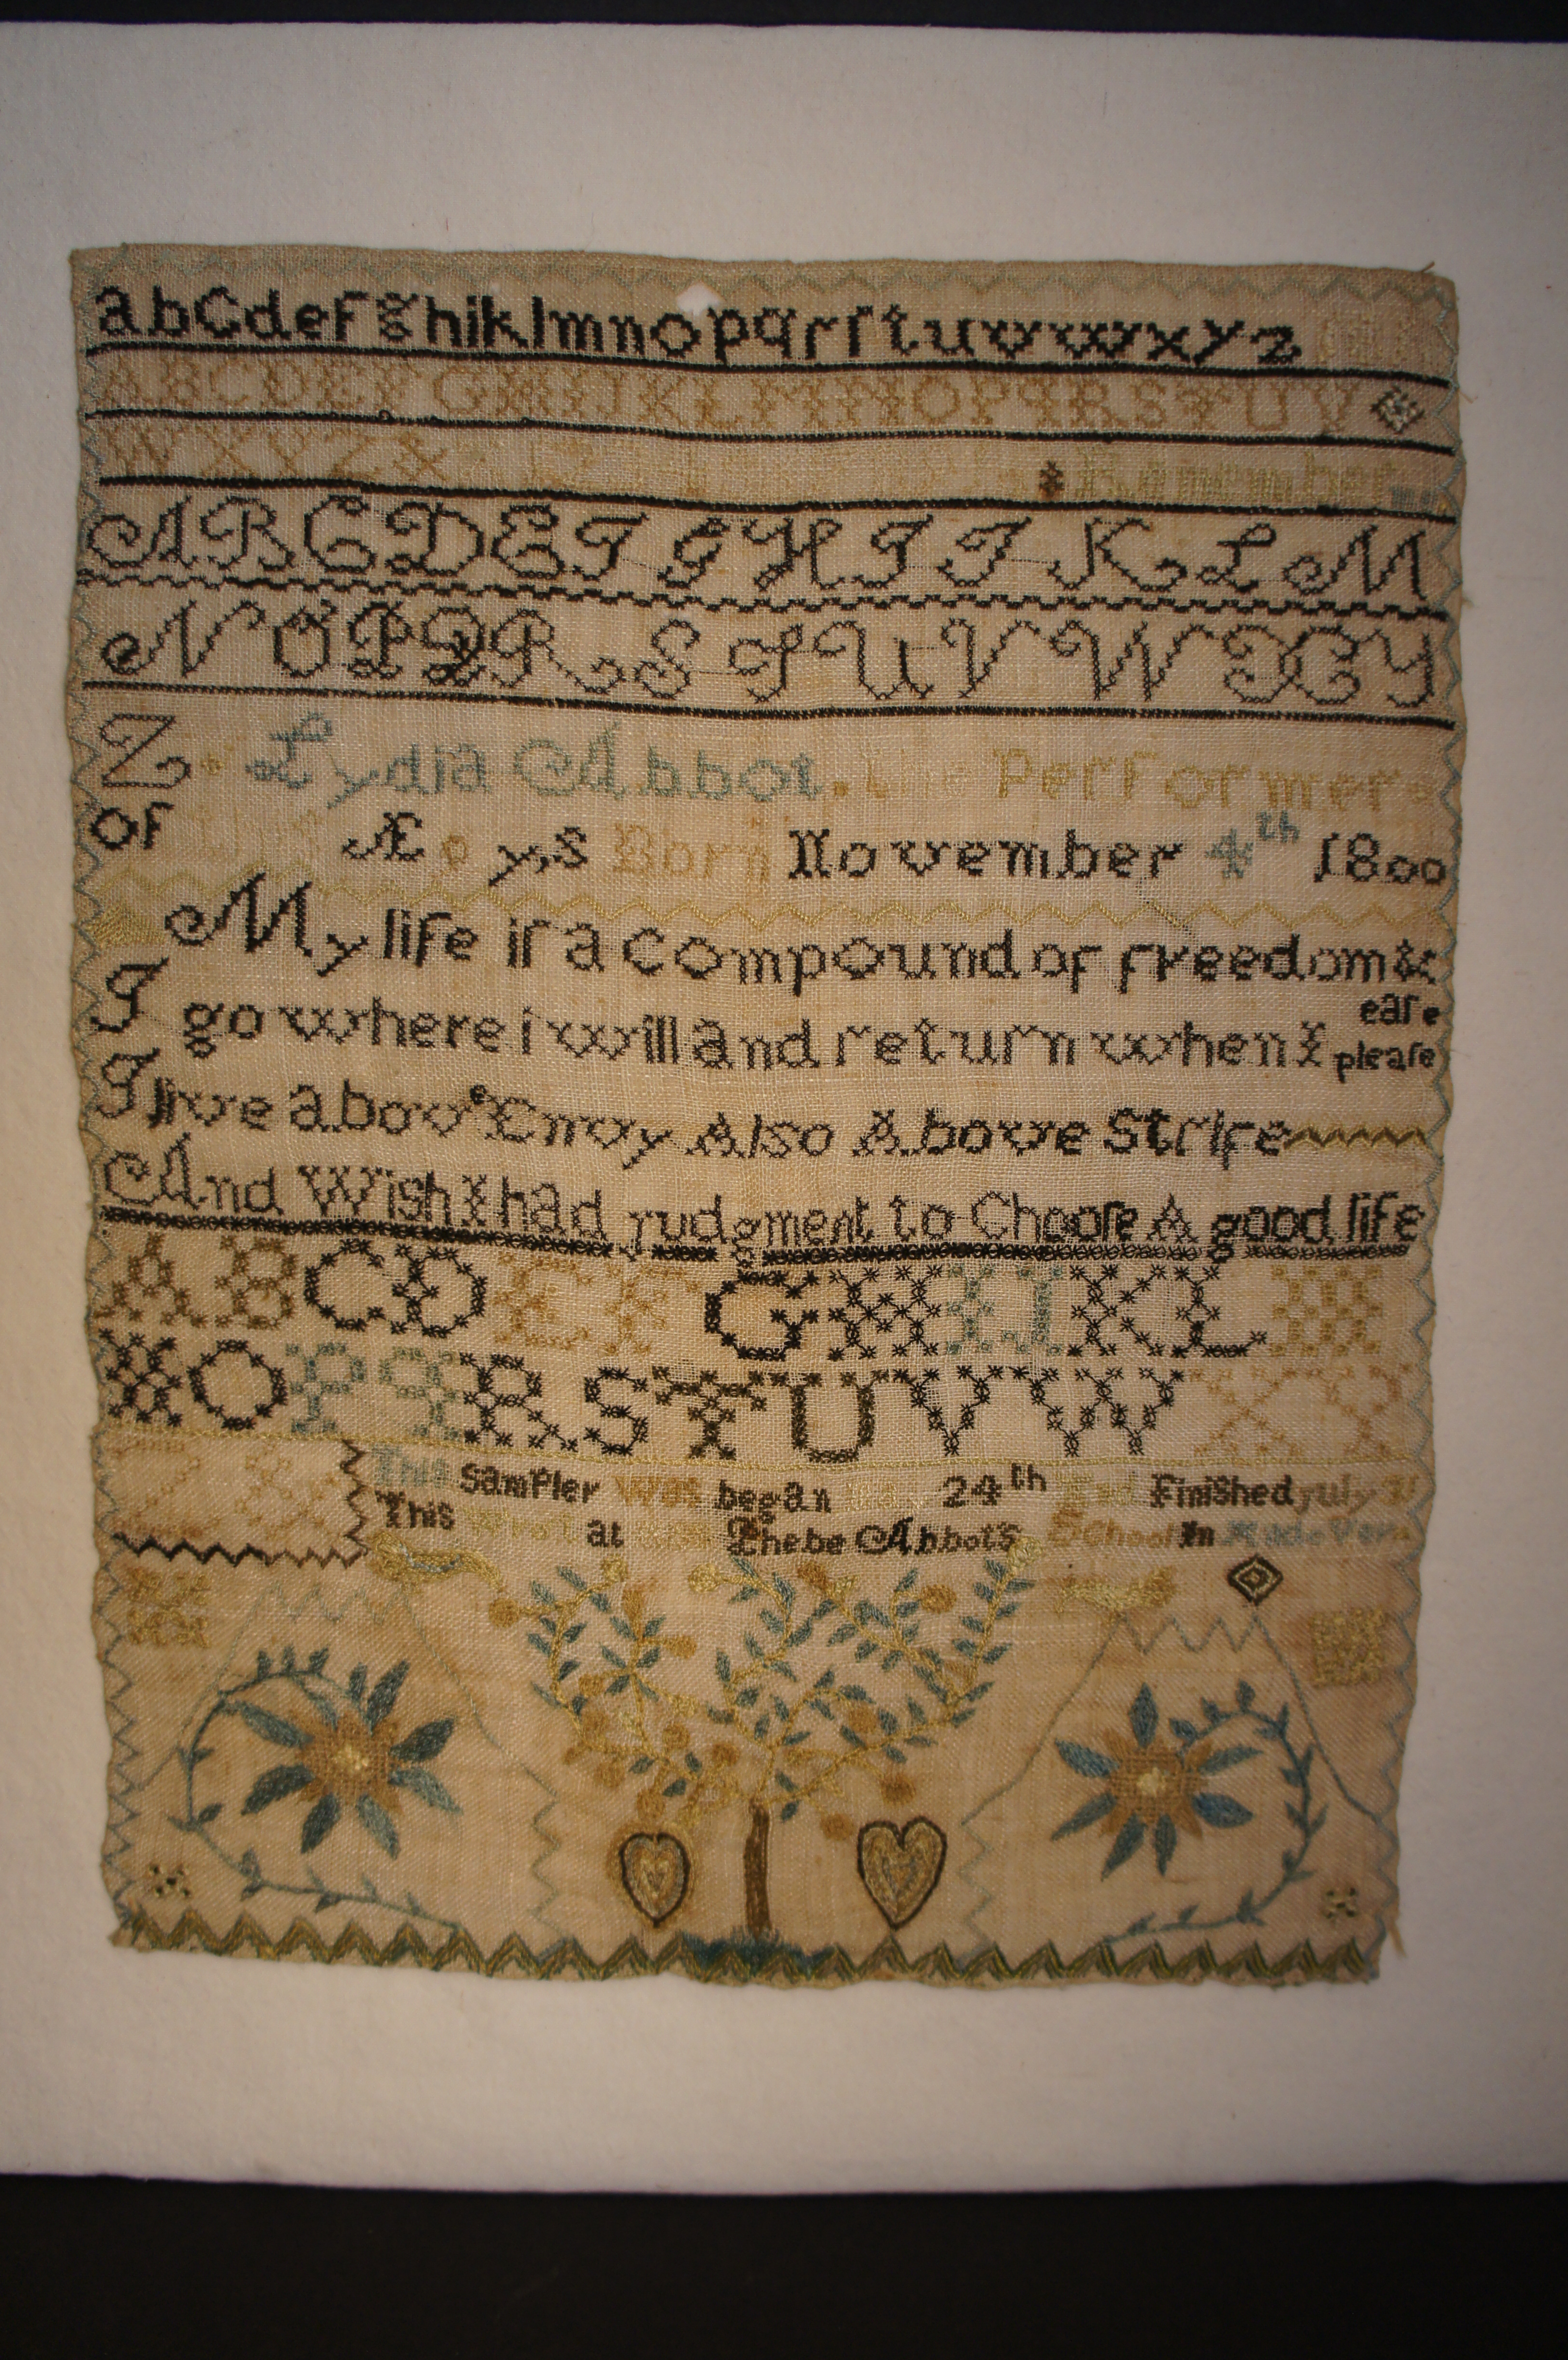 abcdefghiklmnopqrſstuvwxyz
ABCDEFGHIJKLMNOPQRSTUV
WXYZ& Remember me
ABCDEFGHIJKLM
NOPQRSTUVWXY
Z Lydia Abbot. the Performer
of Æ yƨ Born November 4th 1800
My life iſ a compound of freedom &
eaſe
I go where i will and return when I pleaſe
I live above Envy Also Above Strife
And Wish I had judgment to Chooſe A good life
ABCDEFGHIJKLM
NOPQRSTUVWXY
Z& This sampler was began 24th and finished july
This at Phebe Abbots School In